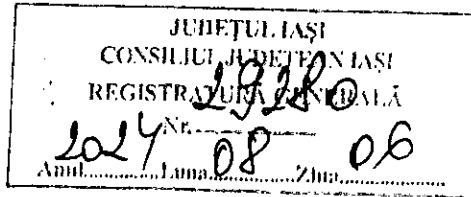 JUDEŢUL IAŞI
CONSILIUL JUDEŢEAN IAŞI
REGISTRATURA GENERALĂ
Nr. 29280
Anul 2024 Luna 08 Ziua 06